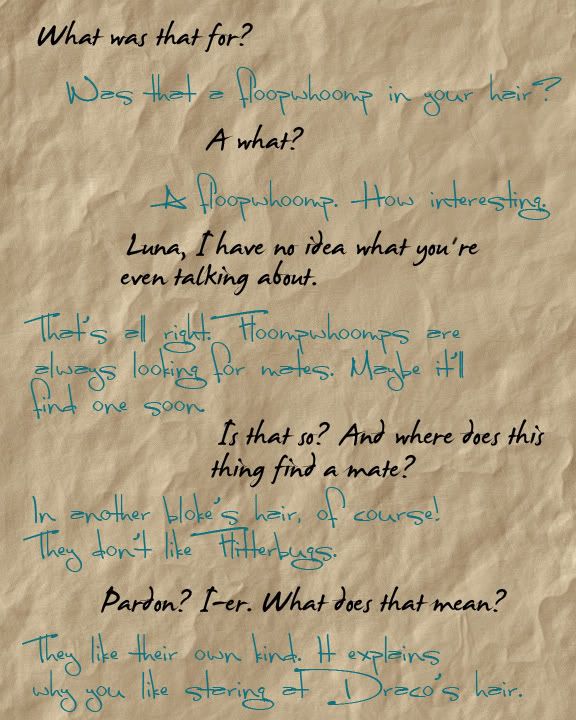 What was that for?
Was that a floopwhoomp in your hair?
A what?
A floopwhoomp. How interesting.
Luna, I have no idea what you're
even talking about.
That's all right. Floompwhoomps are
always looking for mates. Maybe it'll
find one soon.
Is that so? And where does this
thing find a mate?
In another bloke's hair, of course!
They don't like Flitterbugs.
Pardon? I-er. What does that mean?
They like their own kind. It explains
why you like staring at Draco's hair.